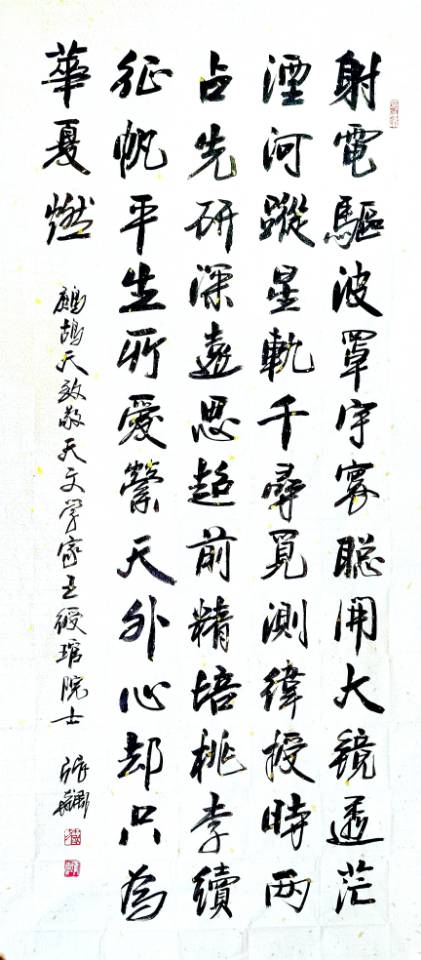 射電驅波罩宇寰聪開大鏡透茫
湮河蹤星軌千尋覓測緯授時两
占先研深遠思超前精培桃李續
征帆平生所愛縈天外心却只為
華夏燃
鷓鴣天致敬天文学家王綬琯院士